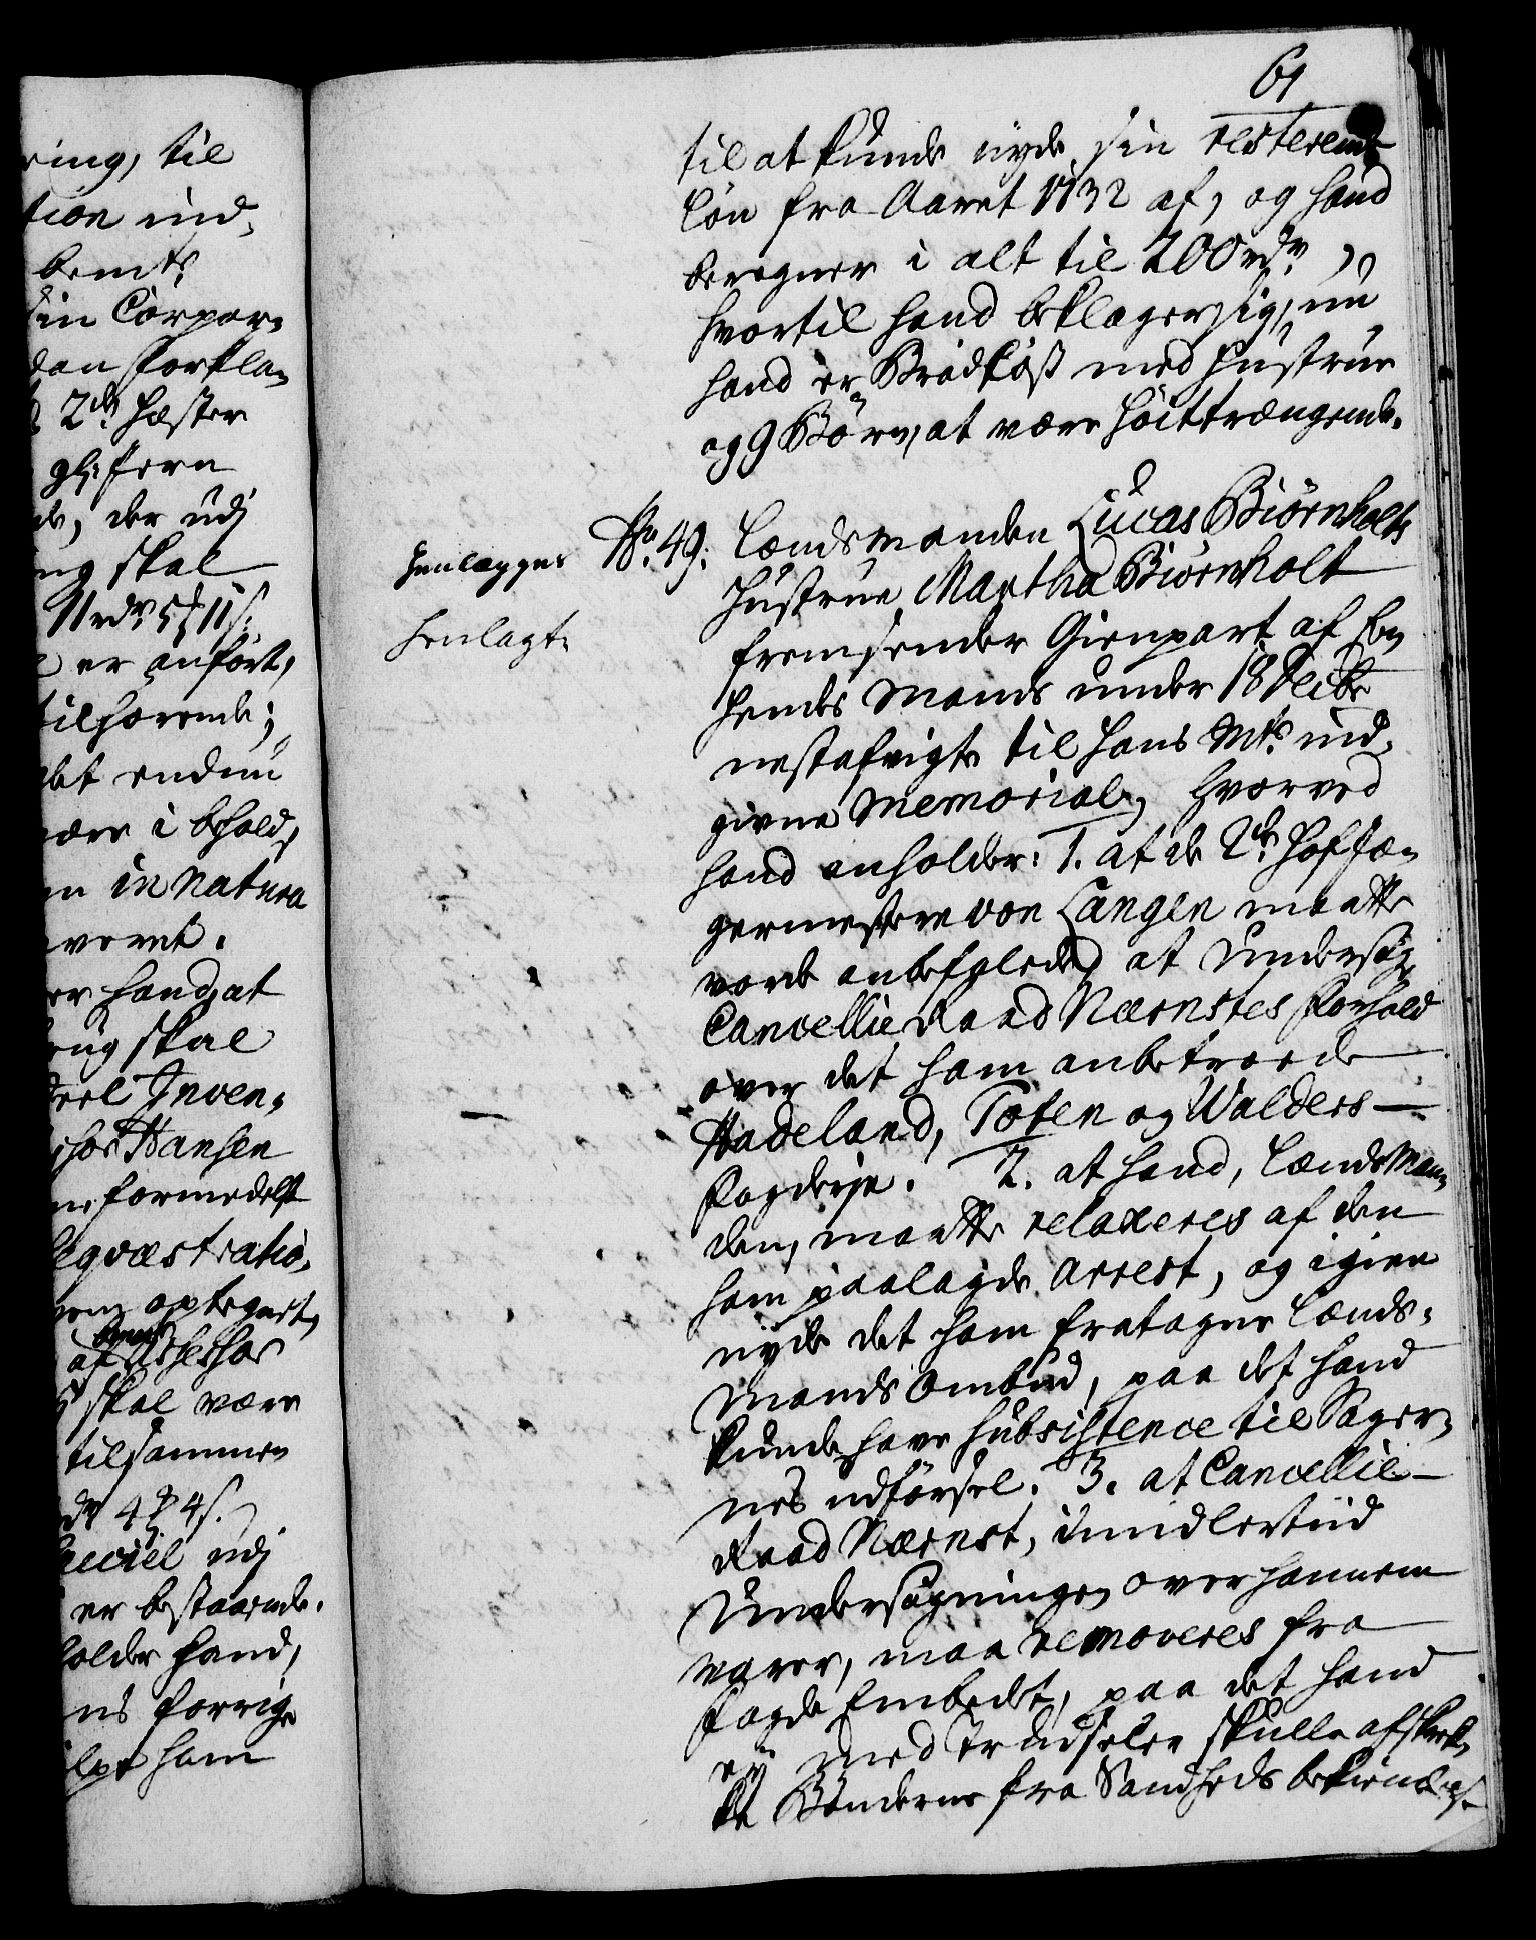 ring, til
tion ind,
bemte
sin Corpor,
dan forkla,
2de Hæster
gl: fern
de, der udj
ng skal
11 rdr 5 ₰ 11 s:
er anført,
tilhørende;
det endnu
være i behold,
en in Natura
veret.
er hand, at
brug skal
Inven,
shor Hansen
ne formedelst
Seqvæstratio,
optegnet,
bemte
af Assessor
skal være
tilsammen
dr 4 ₰ 4 s.
udj
er bestaaende.
holder hand,
ns forrige
ham
61
til at kunde nyde sin resterende
Løn fra Aaret 1732 af, og hand
beregner i alt til 200 rdr.,
hvortil hand beklager sig, nu
hand er Brødløst med Hustrue
og 9 Børn, at være høittrængende.
Henlægges
No. 49. Lændsmanden Lucas Biørnholts
Henlagt.
Hustrue Martha Biørnholt
fremsender Gienpart af En
hendes Mands under 18 Decbr
nestafvigte til Hans Mts. ind,
givne Memorial, hvorved
hand anholder: 1. at de 2de Hof Jæ,
germestere von Langen maatte
vorde anbefalede, at undersøge
Cancellie Raad Nærnstes forhold
over det ham anbetroede
Hadeland, Toten og Walders
Fogderje. 2. at hand, Lændsman,
den, maatte relaxeres af den
ham paalagde Arrest, og igien
nyde det ham fratagne Lænds,
mands Ombud, paa det hand
kunde have Subsistence til Sager,
nes udførsel. 3. at Cancellie
Raad Nærnst, imidlertiid
Undersøgningen over hannem
varer, maa removeres fra
Fogde Embedet, paa det hand
ej med Trudseler skulle afskræk,
ke Bønderne fra Sandheds bekiendelse